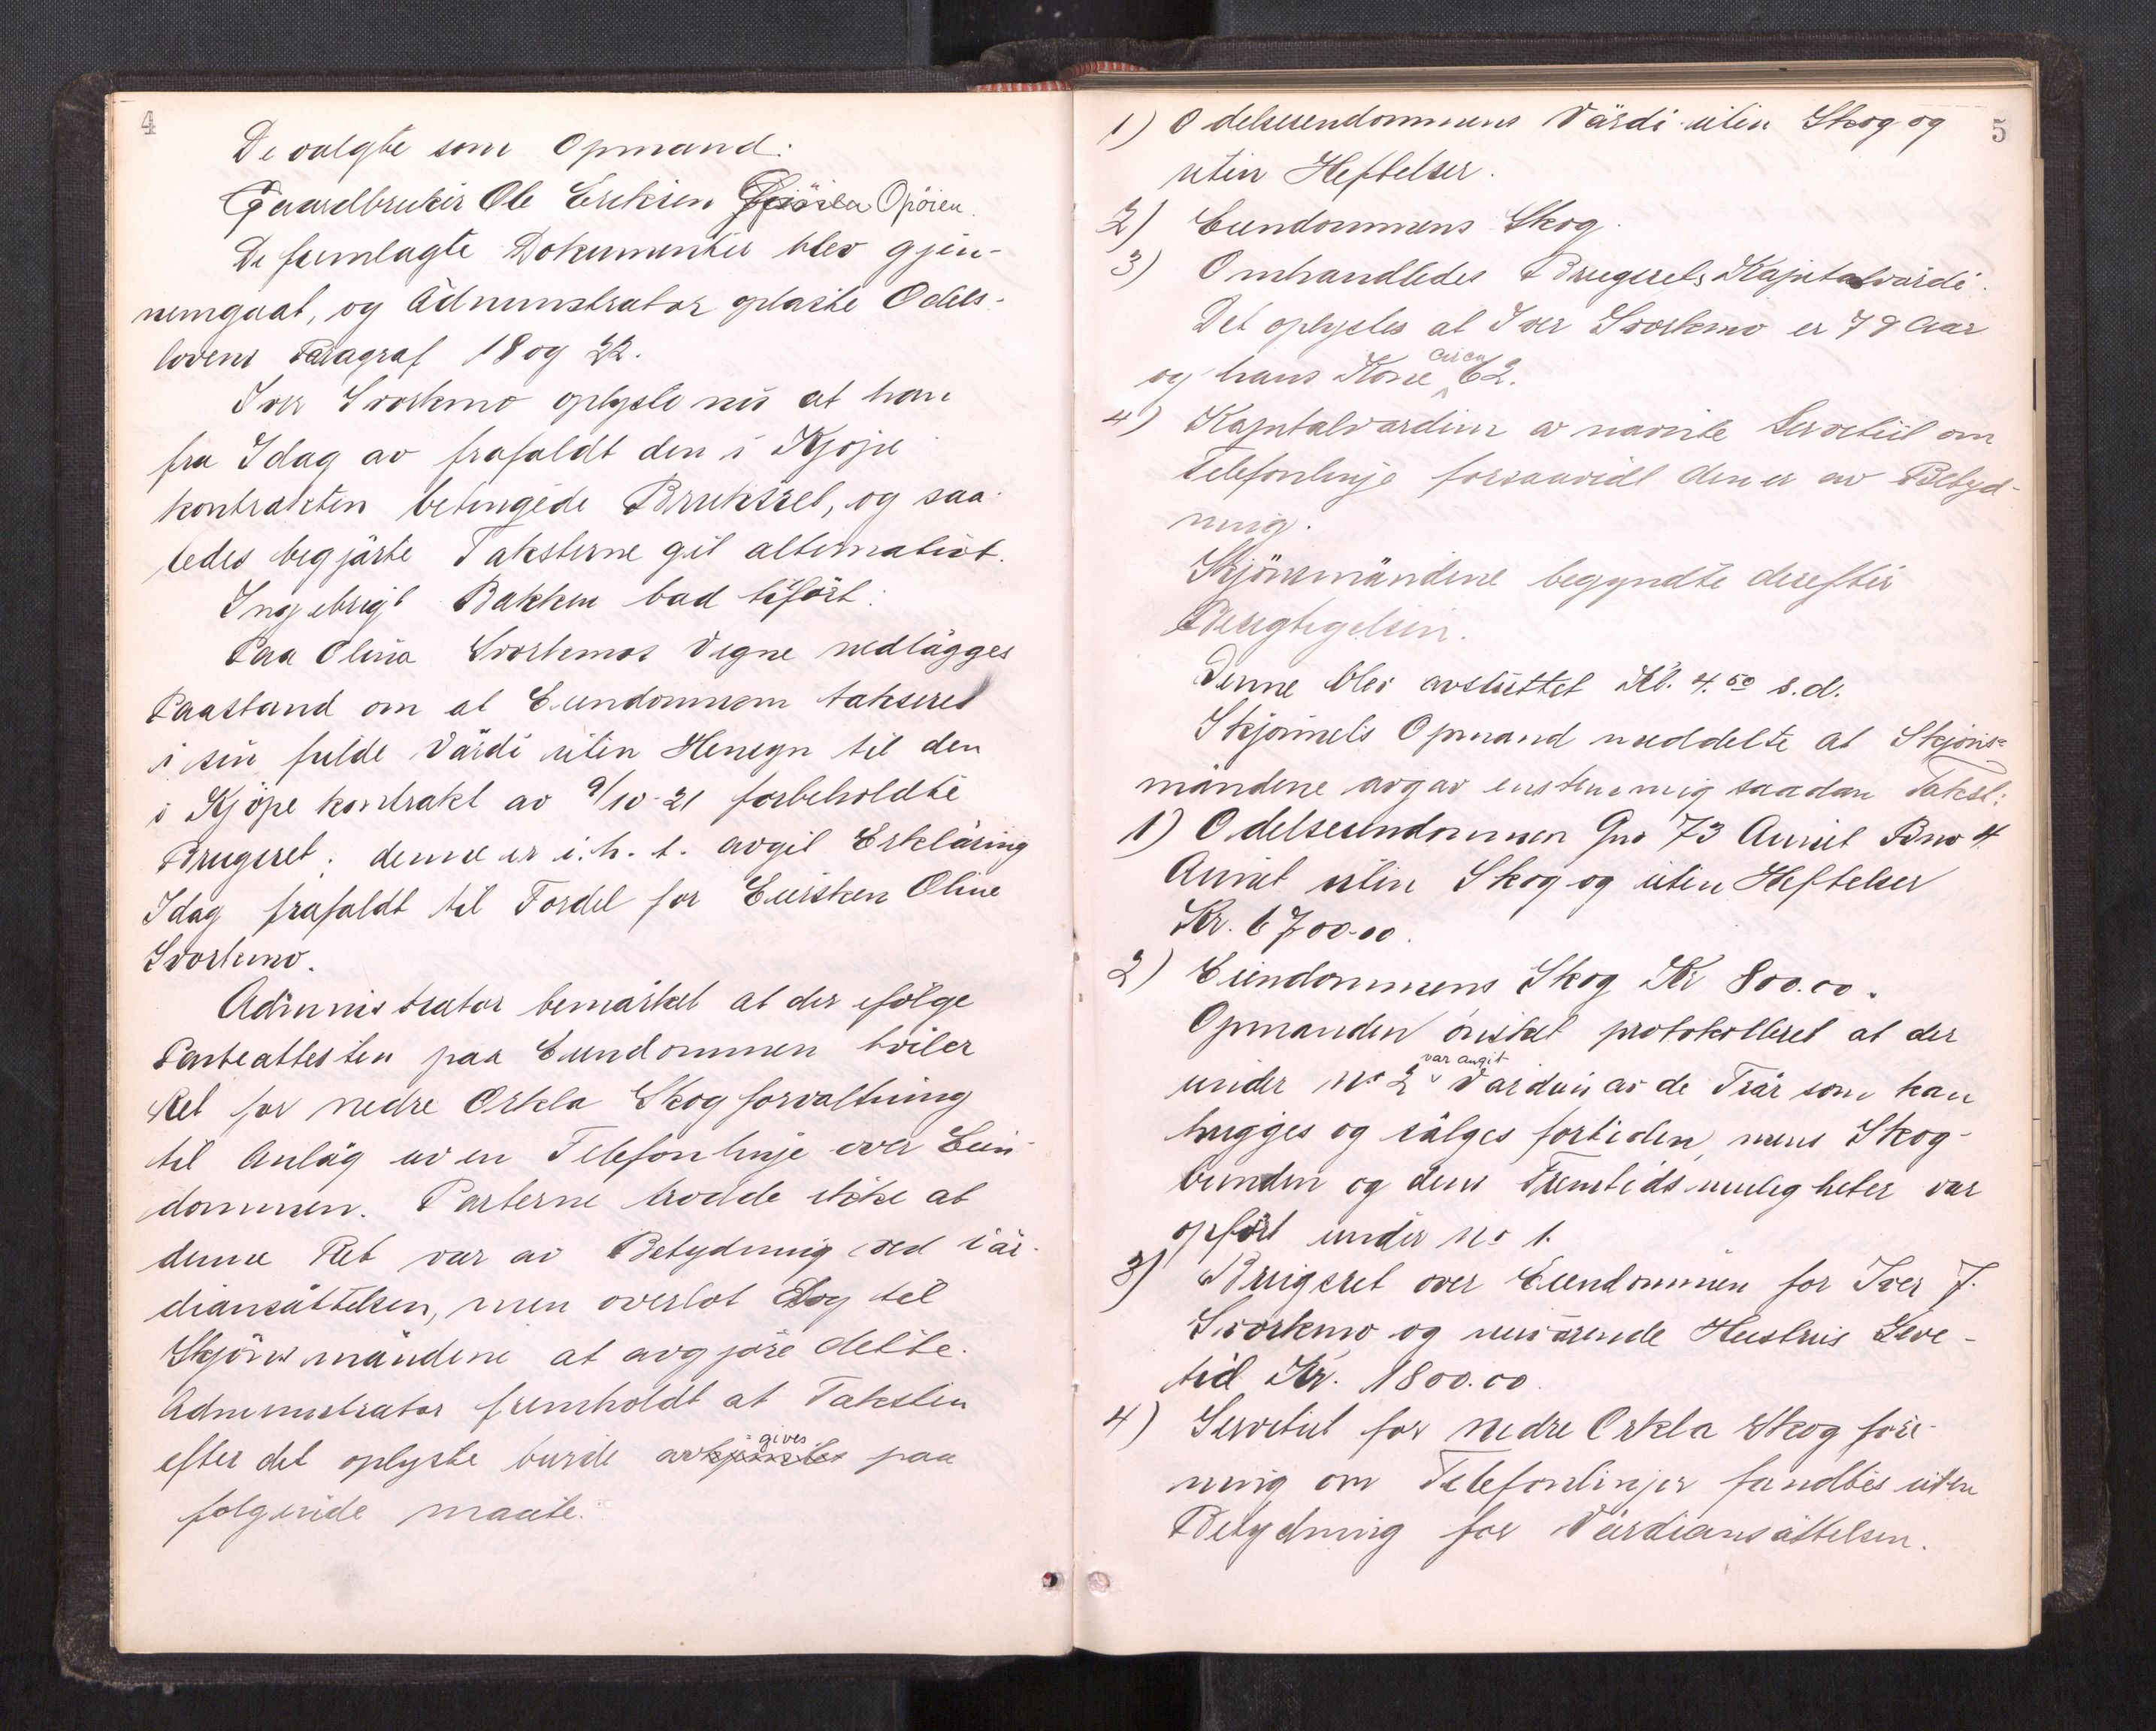 4
De valgte som Opmand:
Gaardbruker Ole Eriksen Opöien.
De fremlagte Dokumenter blev gjen-
nemgaat, og Administrator oplæste Odels-
lovens Paragraf 18 og 22.
Iver Svorkmo oplyste nu at han
fra Idag av frafaldt den i Kjöpe
kontrakten betingede Bruksret, og saa-
ledes begjärte Taksterne git alternativt.
Ingebrigt Bakken bad tilfört:
Paa Olina Svorkmos Vegne nedlägges
Paastand om at Eiendommen takseres
i sin fulde Värdi uten Hensyn til den
i Kjöpe kontrakt av 9/10-21 forbeholdte
Brugsret; denne er i.h.t. avgit Erkläring
Idag frafaldt til Fordel for Eiersken Oline
Svorkmo.
Administrator bemärket at der efölge
Panteattesten paa Eiendommen hviler
Ret for nedre Orkla Skogforvaltning
til Anläg av en Telefonlinje over Eien-
dommen. Parterne trodde ikke at
denne Ret var av Betydning ved Vär-
diansättelsen, men overlot Dog til
Skjönsmändene at avgjöre dette.
Administrator fremholdt at Taksten
efter det oplyste burde avgives paa
folgende maate:
5
1) Odelseiendommens Värdi uten Skog og
uten Heftelser.
2) Eiendommens Skog.
3) Omhandledes Brugsrets Kapitalvärdi.
Det oplystes at Iver Svorkmo er 79 Aar
og hans Kone circa 62.
4) Kapitalvardien av navnte Servetut om
Telefonlinje forsaavidt den er av Betyd-
ning.
Skjönsmändene begyndte derefter
Besigtigelsen.
Denne blev avsluttet Kl. 4.50 s.d.
Skjönnets Opmand meddelte at Skjöns-
mändene avgav enstemmig saadan Takst:
1) Odelseiendommen Gno 73 Aunet Bno 4
Aunet uten Skog og uten Heftelser
Kr. 6700.00.
2) Eiendommens Skog Kr 800.00.
Opmanden önsket protokolleret at der
under No 2 var angit Vardien av de Trär som kan
hugges og sälges fortiden, mens Skog-
bunden og dens Fremtidsmuligheter var
opfört under No 1.
3) Brugsret over Eiendommen for Iver J.
Svorkmo og nuvärende Hustrus Leve-
tid Kr. 1800.00.
4) Servetut for nedre Orkla Skogfore-
ning om Telefonlinjer fandtes uten
Betydning for Värdiansättelsen.